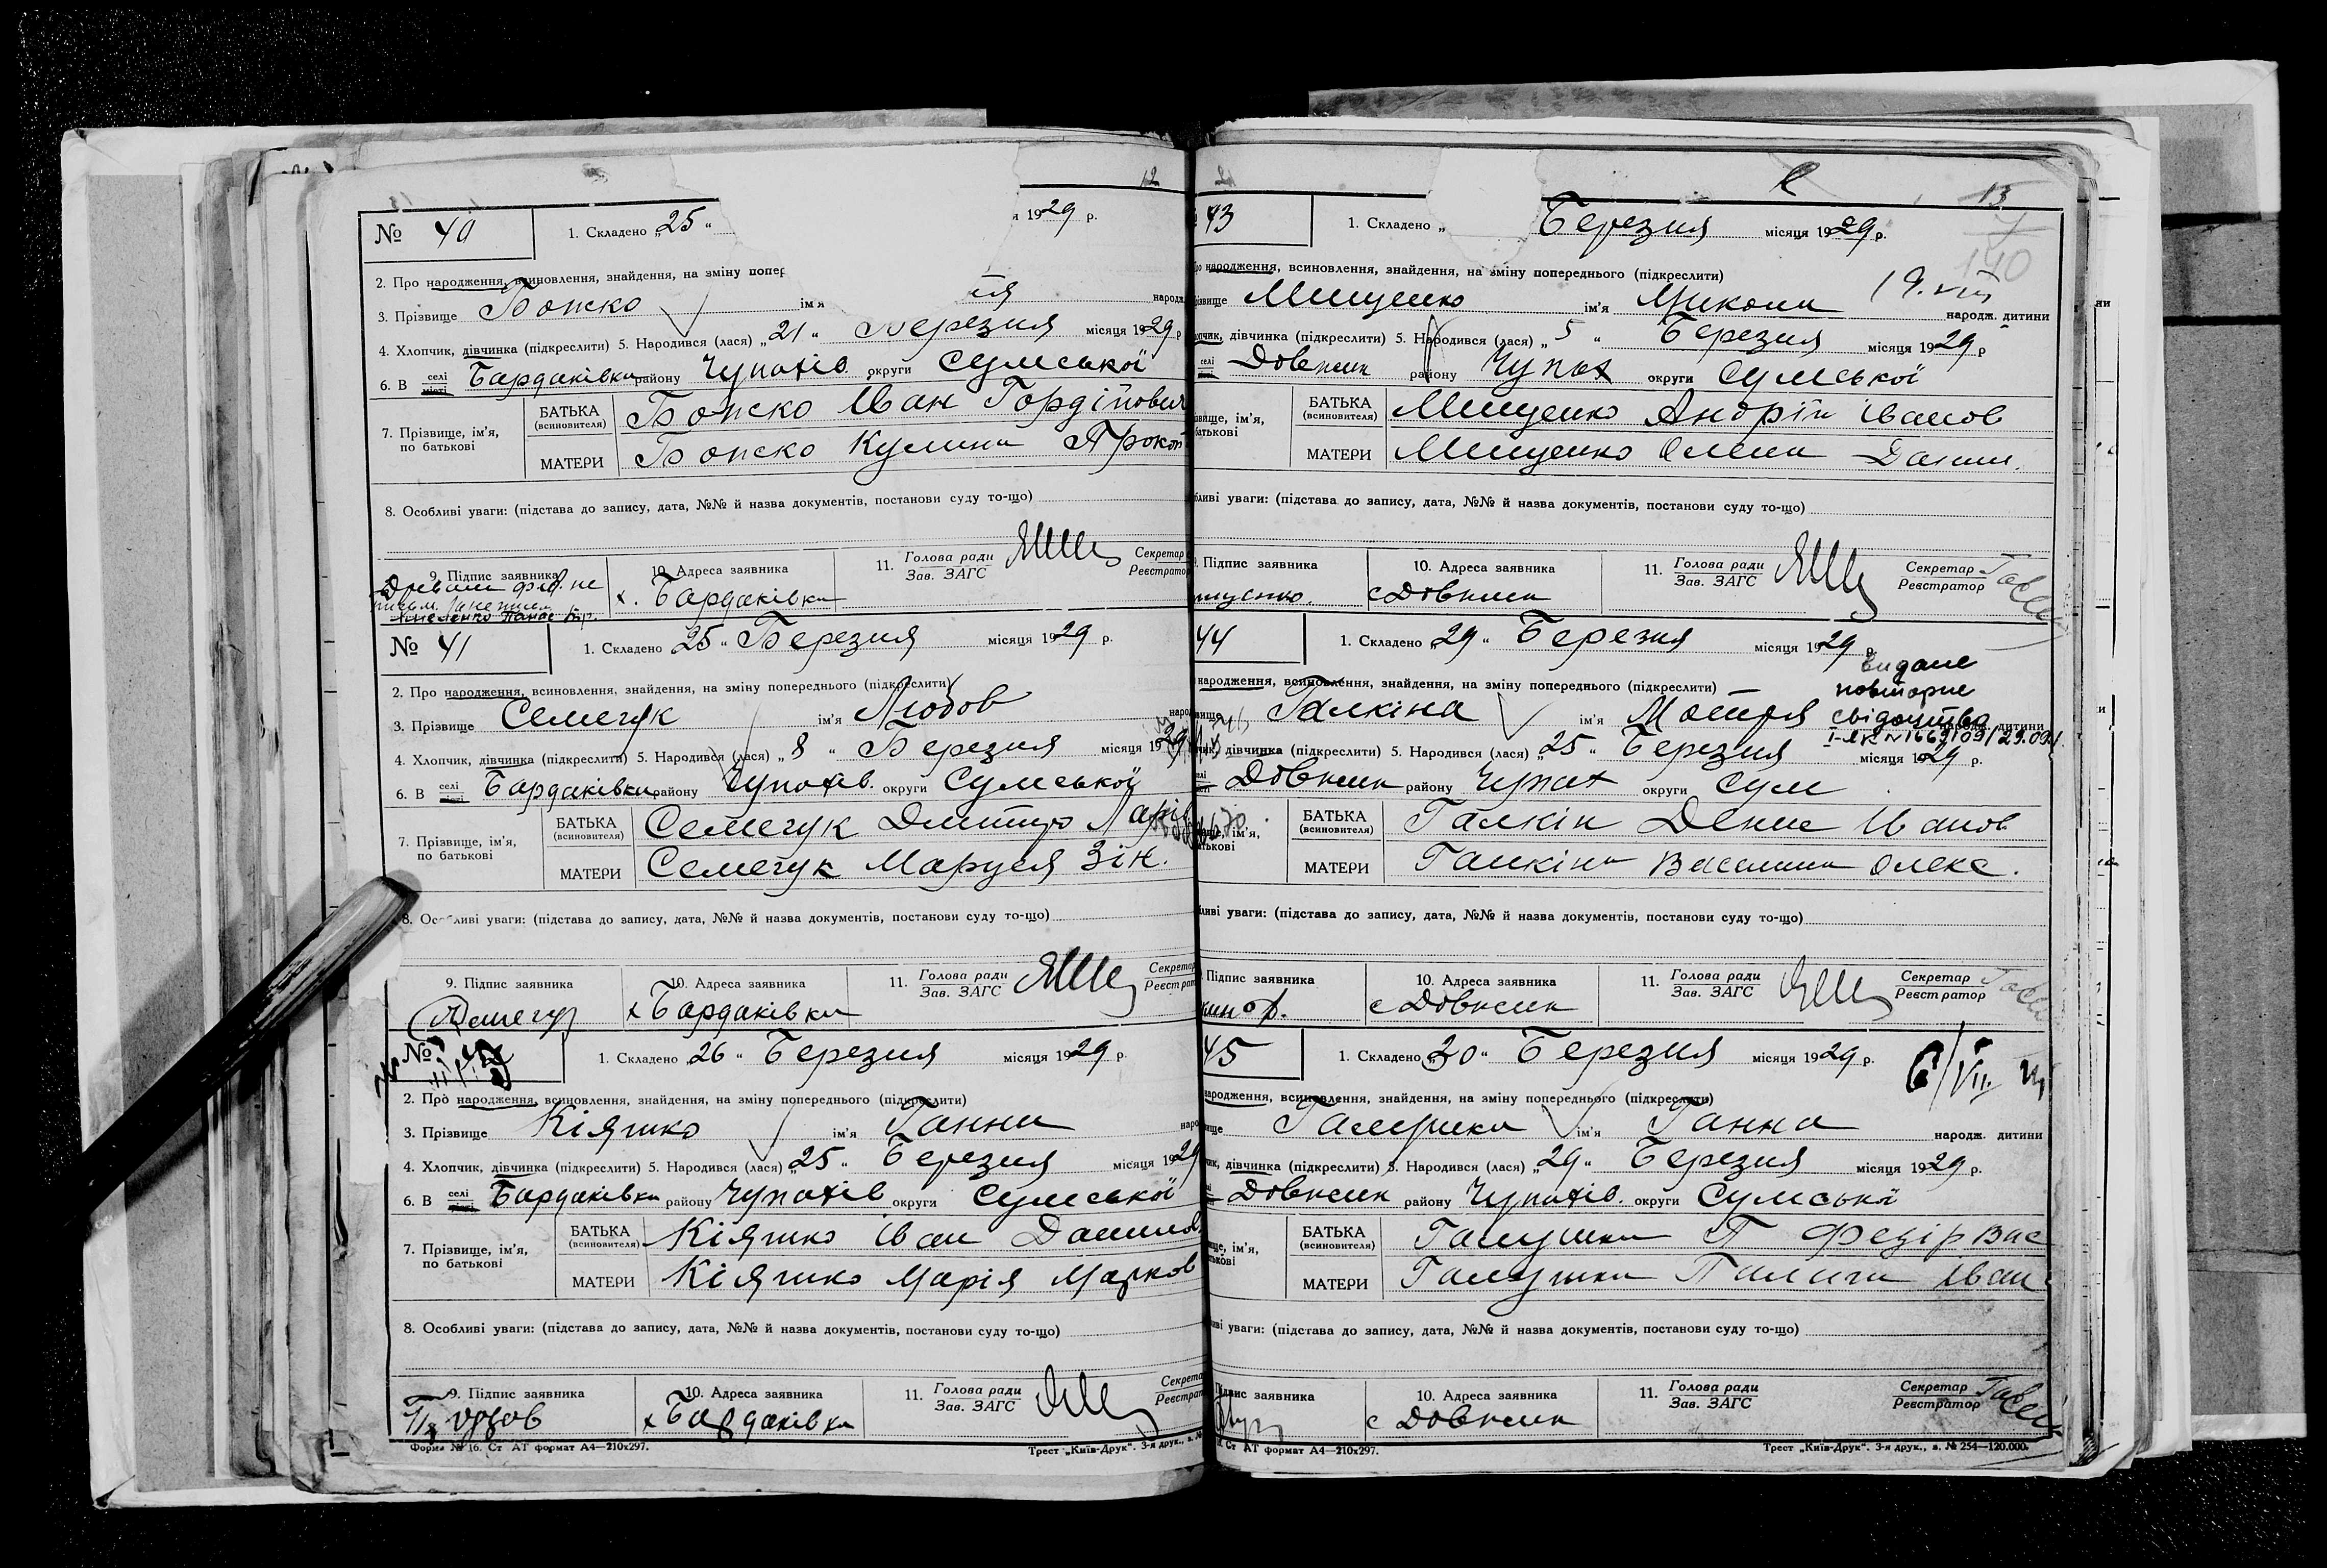 12
№ 40
1. Складено „25“ 1929 р.
2. Про народження, всиновлення, знайдення, на зміну попер
3. Прізвище Божко ім'я народж
4. Хлопчик, дівчинка (підкреслити) 5. Народився (лася) „21“ Березня місяця 1929 р
6. В селі Бардаківки району Чупахів. округи Сумської
місті
7. Прізвище, ім'я, по батькові БАТЬКА (всиновителя) Божко Іван Гордійович
МАТЕРИ Божко Кулина Проко
8. Особливі уваги: (підстава до запису, дата, №№ й назва документів, постанови суду то-що)
9. Підпис заявника 10. Адреса заявника 11. Голова ради Секретар
Зав. ЗАГС Реєстратор
х. Бардаківки
№ 41 1. Складено „25“ Березня місяця 1929 р.
2. Про народження, всиновлення, знайдення, на зміну попереднього (підкреслити)
3. Прізвище Семегук ім'я Любов народ
4. Хлопчик, дівчинка (підкреслити) 5. Народився (лася) „8“ Березня місяця 1929
6. В селі Бардаківки району Чупахів. округи Сумської
місті
7. Прізвище, ім'я, по батькові БАТЬКА (всиновителя) Семегук Дмитро Ларів
МАТЕРИ Семегук Маруся Зін.
8. Особливі уваги: (підстава до запису, дата, №№ й назва документів, постанови суду то-що)
9. Підпис заявника 10. Адреса заявника 11. Голова ради Секретар
Зав. ЗАГС Реєстрат
х Бардаківки
№ 1. Складено „26“ Березня місяця 1929 р.
2. Про народження, всиновлення, знайдення, на зміну попереднього (підкреслити)
3. Прізвище Кіяшко ім'я Ганна наро
4. Хлопчик, дівчинка (підкреслити) 5. Народився (лася) „25“ Березня місяця 1929
6. В селі Бардаківки району Чупахів округи Сумської
місті
7. Прізвище, ім'я, по батькові БАТЬКА (всиновителя) Кіяшко Іван Данилов
МАТЕРИ Кіяшко Марія Марков
8. Особливі уваги: (підстава до запису, дата, №№ й назва документів, постанови суду то-що)
9. Підпис заявника 10. Адреса заявника 11. Голова ради Секрета
Зав. ЗАГС Реєстрат
х Бардаківки
Форма № 16. Ст АТ формат А4—210х297. Трест „Київ-Друк“. 3-я друк., з. №
13
43 1. Складено „ Березня місяця 1929 р.
140
народження, всиновлення, знайдення, на зміну попереднього (підкреслити)
19.VIII
Мищенко ім'я Микола народж. дитини
дівчинка (підкреслити) 5. Народився (лася) „5“ Березня місяця 1929 р
селі Довжик району Чупах округи Сумської
ім'я, батькові БАТЬКА (всиновителя) Мищенко Андрій Іванов
МАТЕРИ Мищенко Олена Данил.
уваги: (підстава до запису, дата, №№ й назва документів, постанови суду то-що)
Підпис заявника 10. Адреса заявника 11. Голова ради Секретар
Зав. ЗАГС Реєстратор
с Довжик
44 1. Складено „29“ Березня місяця 1929 р.
видане
повторне
свідоцтво
народження, всиновлення, знайдення, на зміну попереднього (підкреслити)
Галкіна ім'я Мотря народж. дитини
дівчинка (підкреслити) 5. Народився (лася) „25“ Березня місяця 1929 р.
Довжик району Чупах округи Сум
ім'я, БАТЬКА (всиновителя) Галкін Денис Іванов
МАТЕРИ Галкіна Василина Олекс.
уваги: (підстава до запису, дата, №№ й назва документів, постанови суду то-що)
Підпис заявника 10. Адреса заявника 11. Голова ради Секретар
Зав. ЗАГС Реєстратор
с Довжик
45 1. Складено „30“ Березня місяця 1929 р.
6/VII
народження, всиновлення, знайдення, на зміну попереднього (підкреслити)
Галушка ім'я Ганна народж. дитини
дівчинка (підкреслити) 5. Народився (лася) „29“ Березня місяця 1929 р.
Довжик району Чупахів. округи Сумської
ім'я, БАТЬКА (всиновителя) Галушка П Федір Вас
МАТЕРИ Галушка Палага Іван
уваги: (підстава до запису, дата, №№ й назва документів, постанови суду то-що)
Підпис заявника 10. Адреса заявника 11. Голова ради Секретар
Зав. ЗАГС Реєстратор
с Довжик
Ст АТ формат А4—210х297. Трест „Київ-Друк“. 3-я друк., з. № 254—120.000.